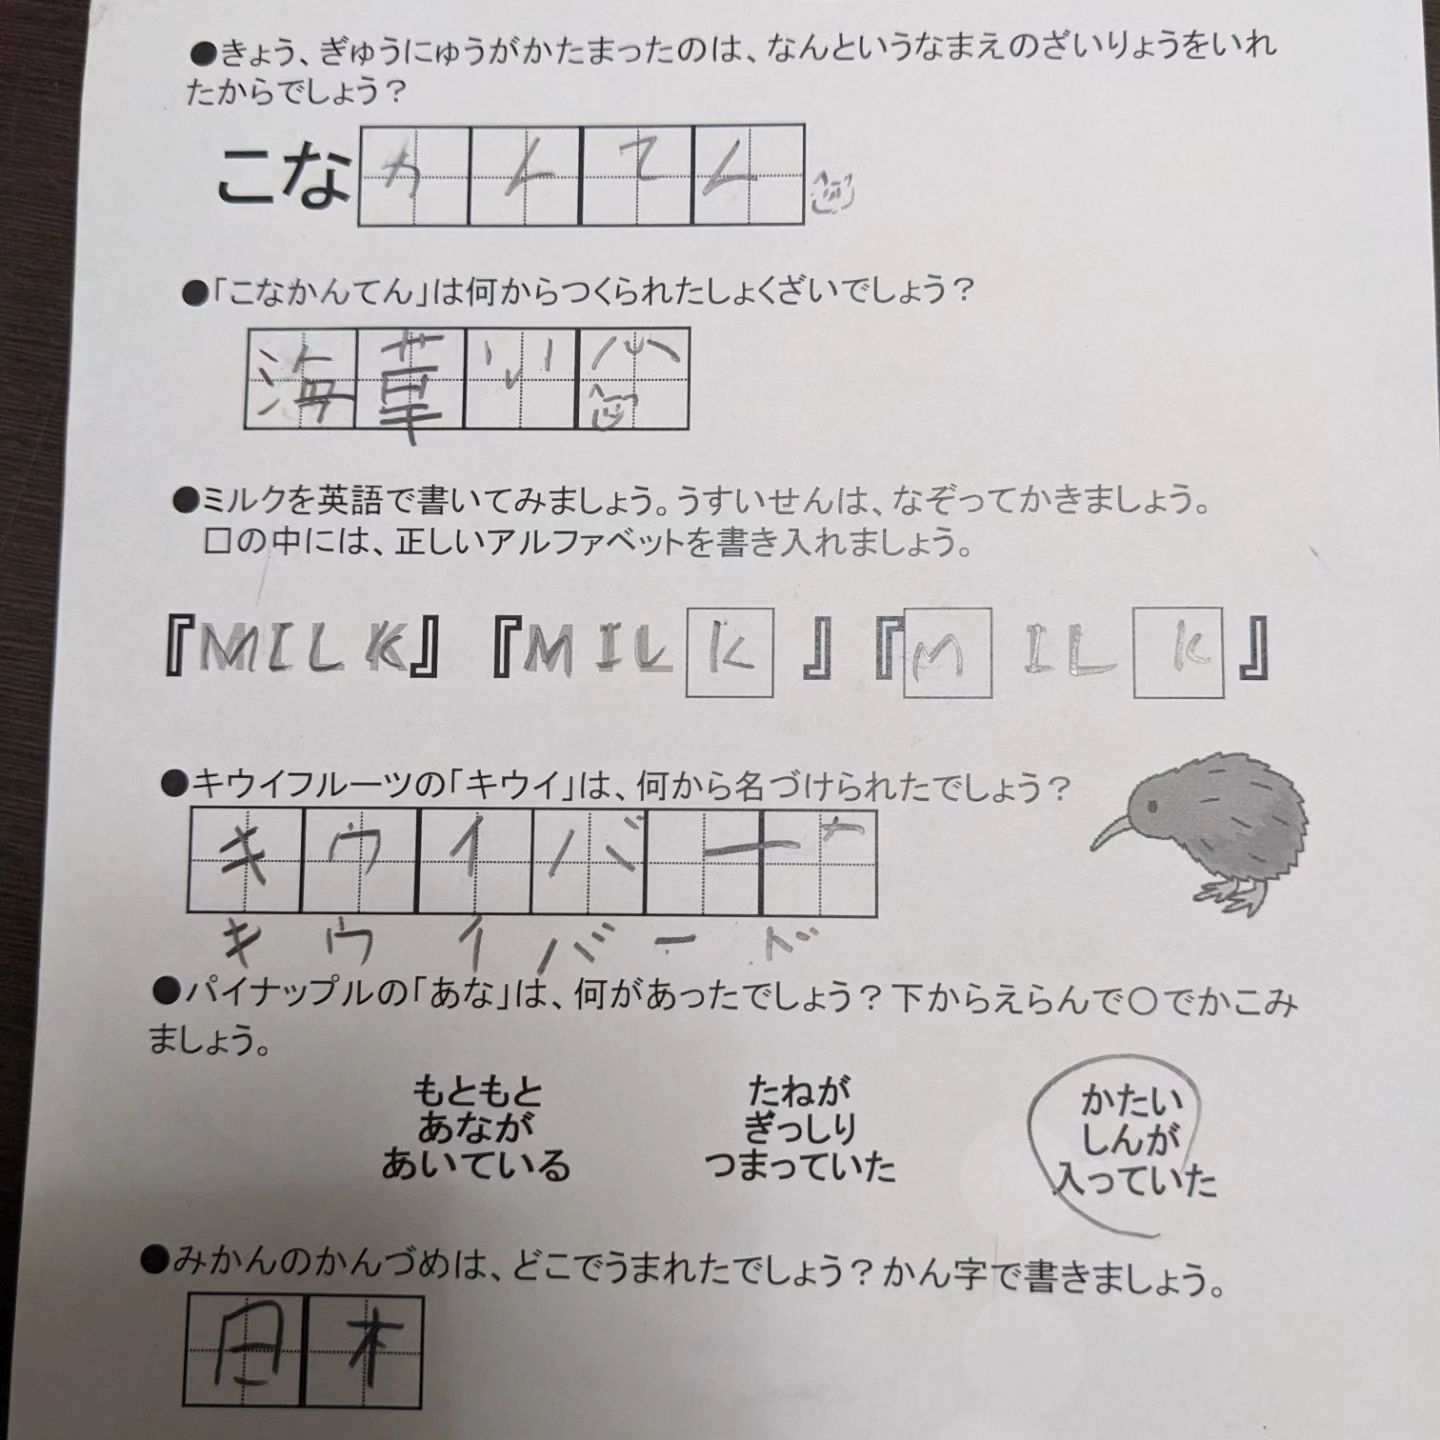 ●きょう、ぎゅうにゅうがかたまったのは、なんというなまえのざいりょうをいれ
たからでしょう？
こなかんてん
●「こなかんてん」は何からつくられたしょくざいでしょう？
海草
●ミルクを英語で書いてみましょう。うすいせんは、なぞってかきましょう。
□の中には、正しいアルファベットを書き入れましょう。
『MILK』 『MILK』 『MILK』
●キウイフルーツの「キウイ」は、何から名づけられたでしょう？
キウイバード
キウイバード
●パイナップルの「あな」は、何があったでしょう？下からえらんで○でかこみ
ましょう。
もともと
あなが
あいている
たねが
ぎっしり
つまっていた
かたい
しんが
入っていた
●みかんのかんづめは、どこでうまれたでしょう？かん字で書きましょう。
日本